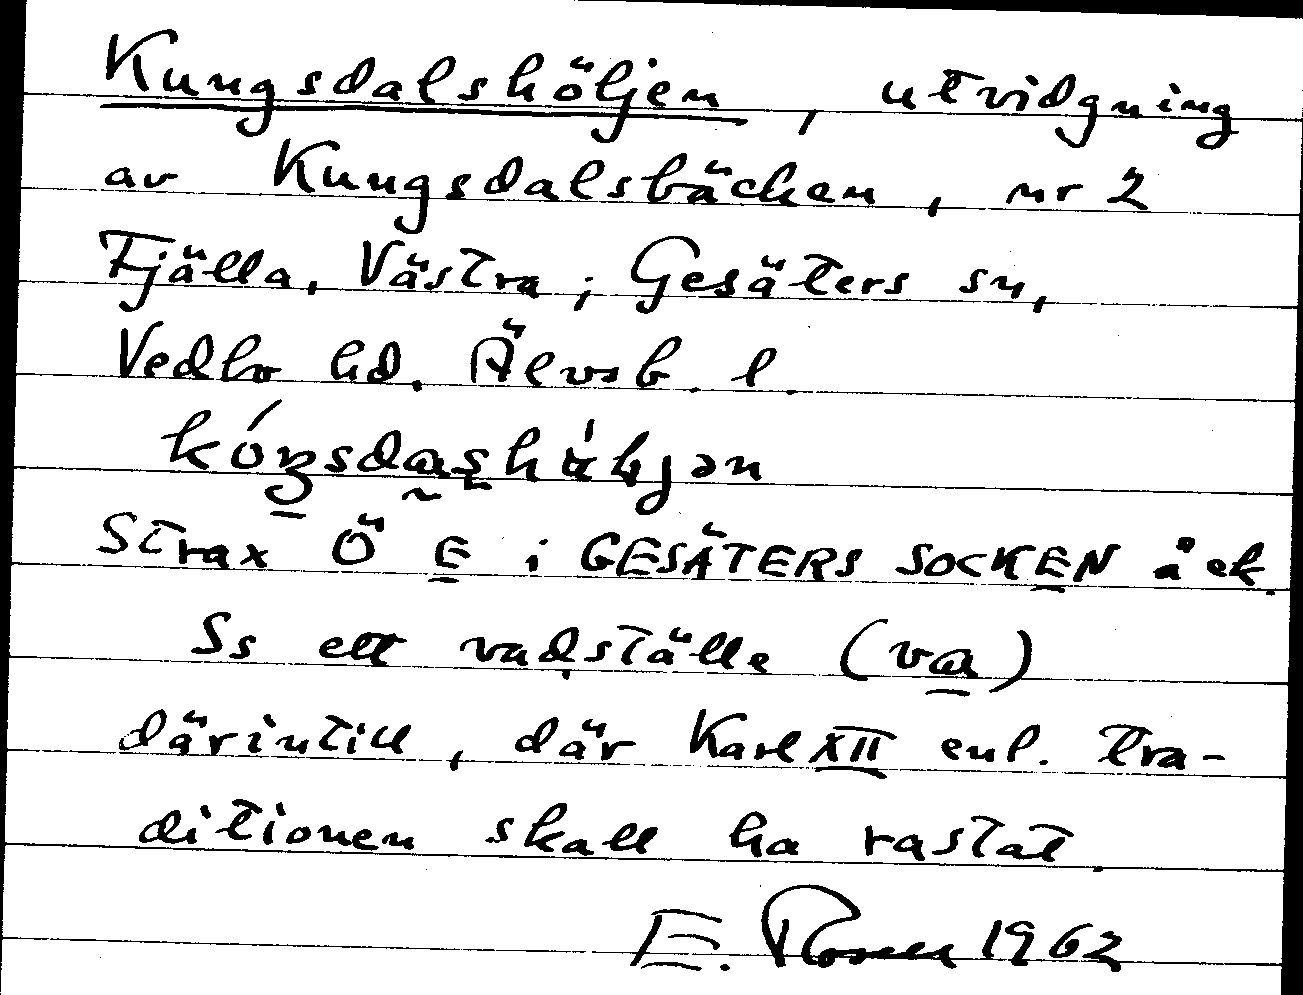 Kungsdalshöljen, utvidgning
av Kungsdalsbäcken, nr 2
Fjälla, Västra; Gesäters sn,
Vedbo hd. Älvsb. l.
Strax Ö E i GESÄTERS SOCKEN å ek.
Ss ett vadställe (va)
därintill, där Karl XII enl. tra-
ditionen skall ha rastat.
E. Rosen 1962